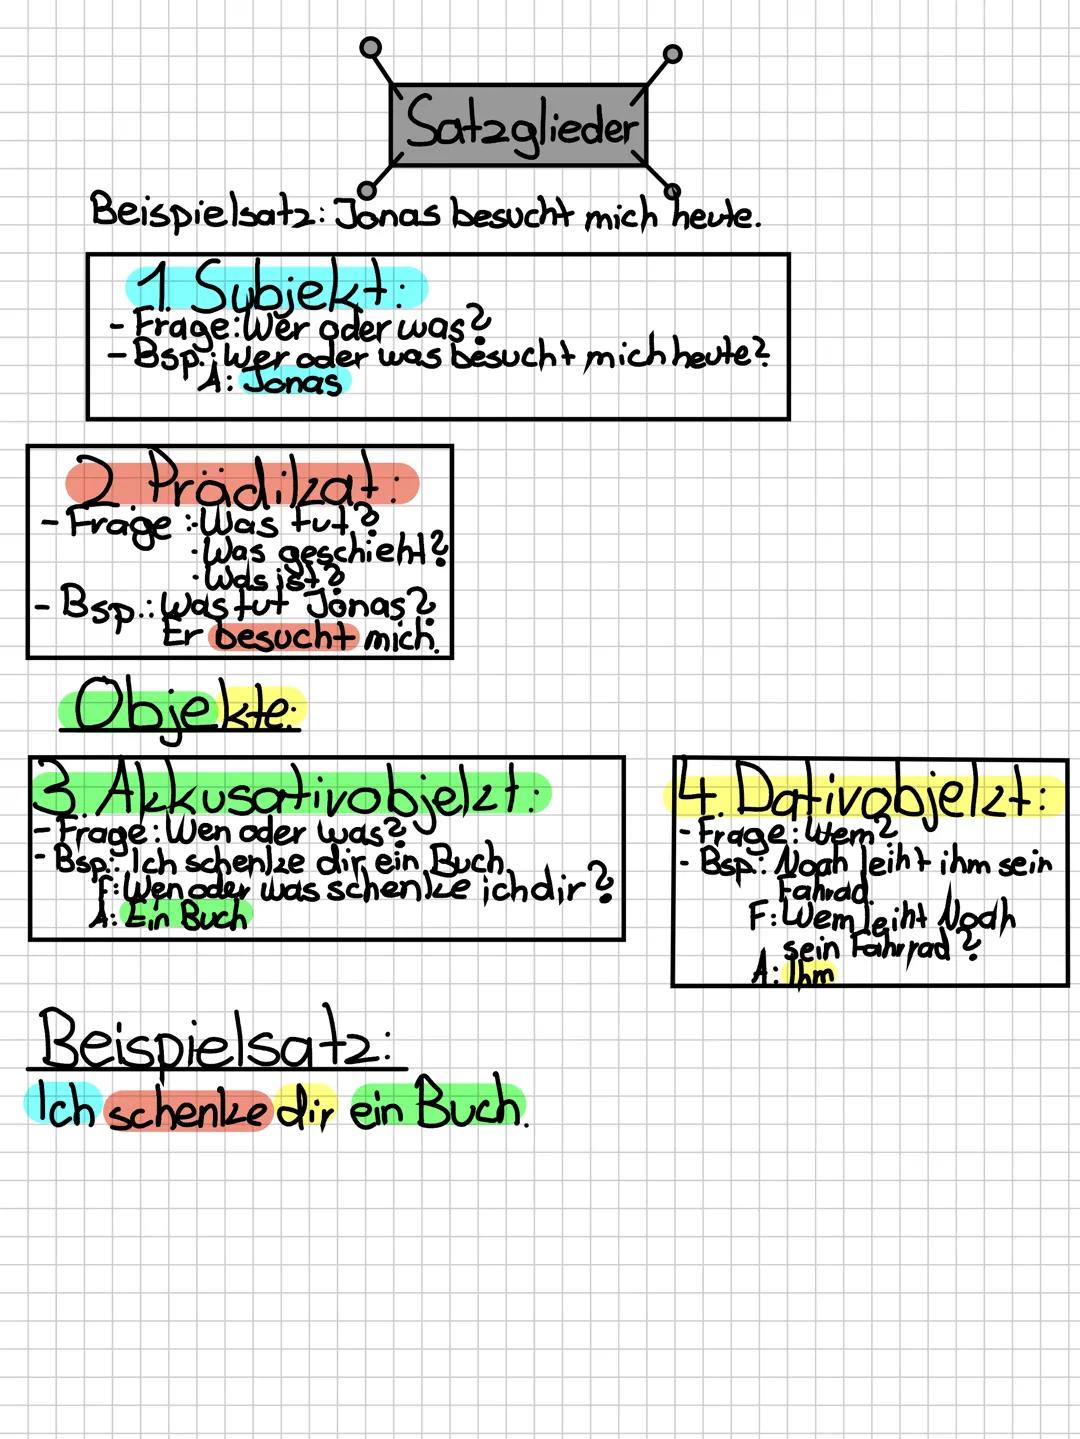 Satzglieder
Beispielsatz: Jonas besucht mich heute.
1. Subjekt:
- Frage: Wer oder was?
- Bsp.: Wer oder was besucht mich heute?
A: Jonas
2. Prädikat:
- Frage: · Was tut?
· Was geschieht?
· Was ist?
- Bsp.: Was tut Jonas?
Er besucht mich.
Objekte:
3. Akkusativobjekt:
- Frage: Wen oder was?
- Bsp.: Ich schenke dir ein Buch
F: Wen oder was schenke ich dir?
A: Ein Buch
4. Dativobjekt:
- Frage: Wem?
- Bsp.: Noah leiht ihm sein
Fahrad.
F: Wem leiht Noah
sein Fahrrad?
A: Ihm
Beispielsatz:
Ich schenke dir ein Buch.